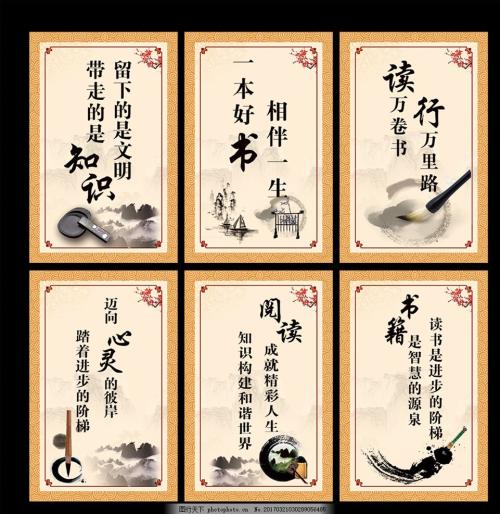 留下的是文明
带走的是知识
一本好书
相伴一生
读万卷书
行万里路
迈向心灵的彼岸
踏着进步的阶梯
阅读成就精彩人生
知识构建和谐世界
书籍是智慧的源泉
读书是进步的阶梯
图行天下 photophoto.cn